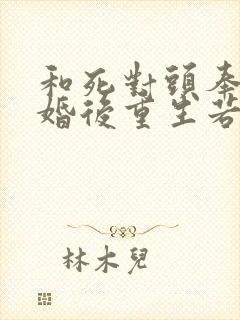 和死對頭奉
婚後重生若
林木兒